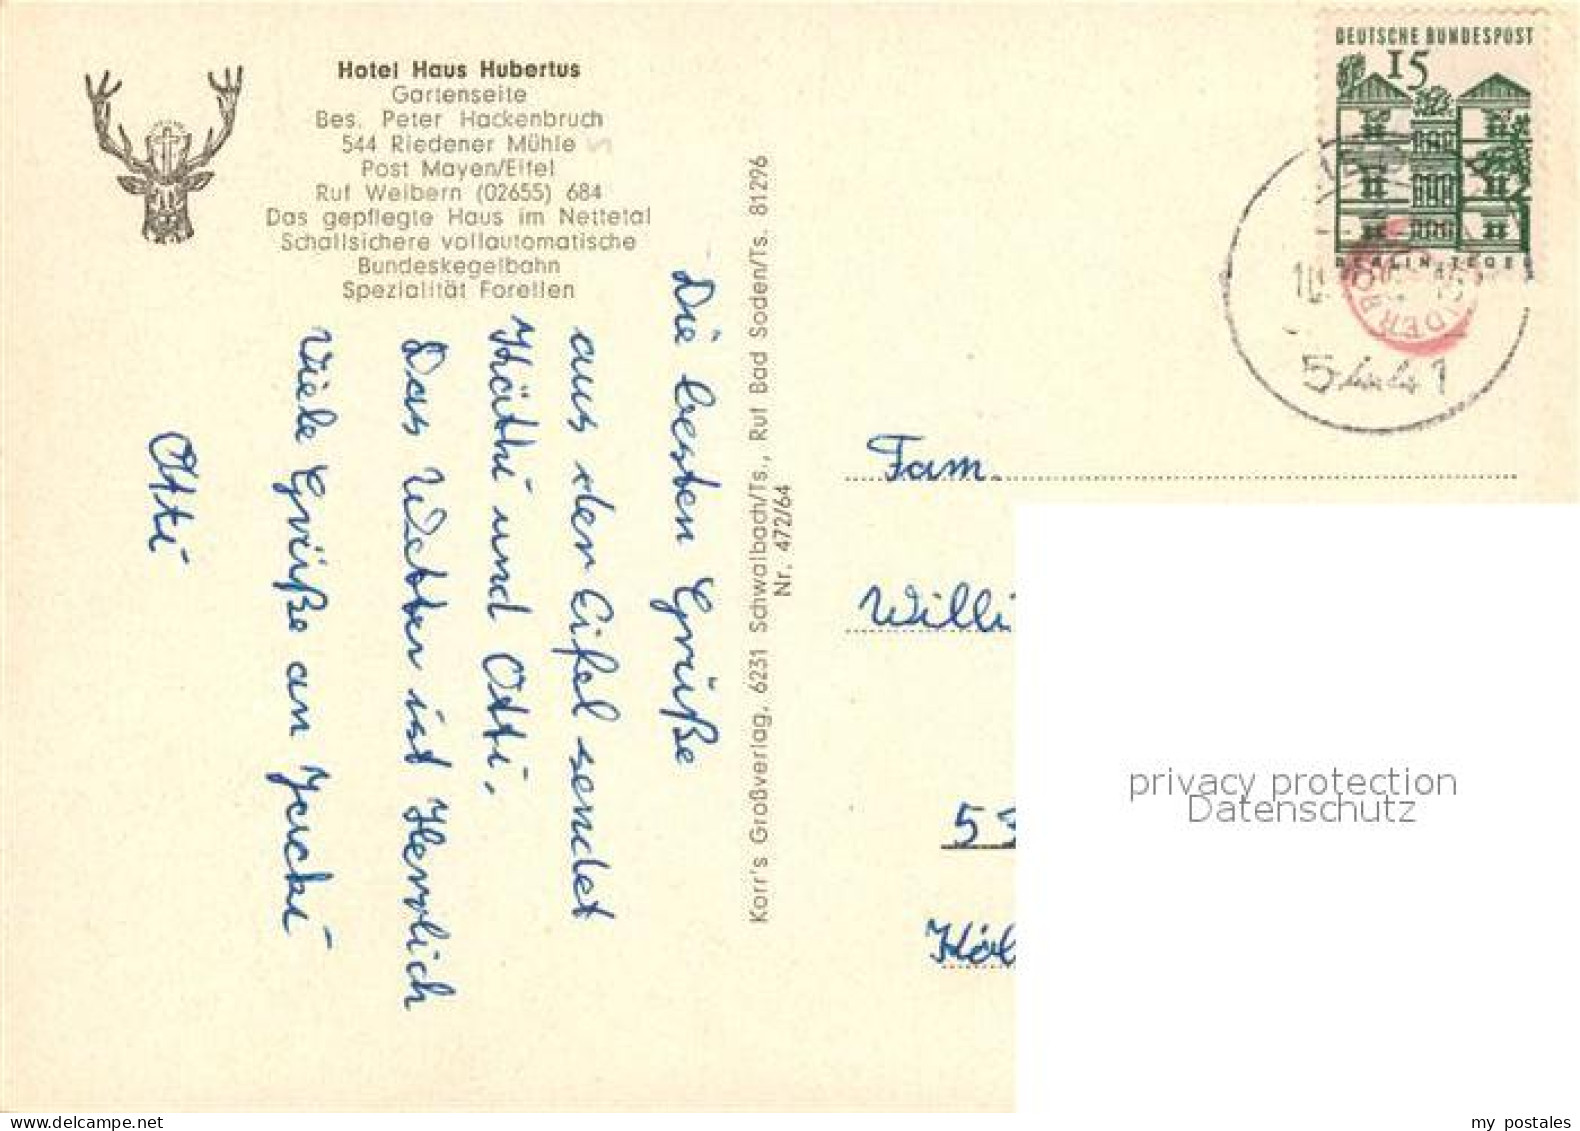 Hotel Haus Hubertus
Gartenseite
Bes. Peter Hackenbruch
544 Riedener Mühle
Post Mayen/Eifel
Ruf Weibern (02655) 684
Das gepflegte Haus im Nettetal
Schallsichere vollautomatische
Bundeskegelbahn
Spezialität Forellen
Die besten Grüße
aus der Eifel sendet
Käthi und Otti.
Das Wetter ist Herrlich
Viele Grüße an Jucki
Otti
Korr's Großverlag, 6231 Schwalbach/Ts., Ruf Bad Soden/Ts. 81296
Nr. 472/64
DEUTSCHE BUNDESPOST
15
BERLIN TEGEL
5441
Fam.
Willi
53
Köl
privacy protection
Datenschutz
my postales